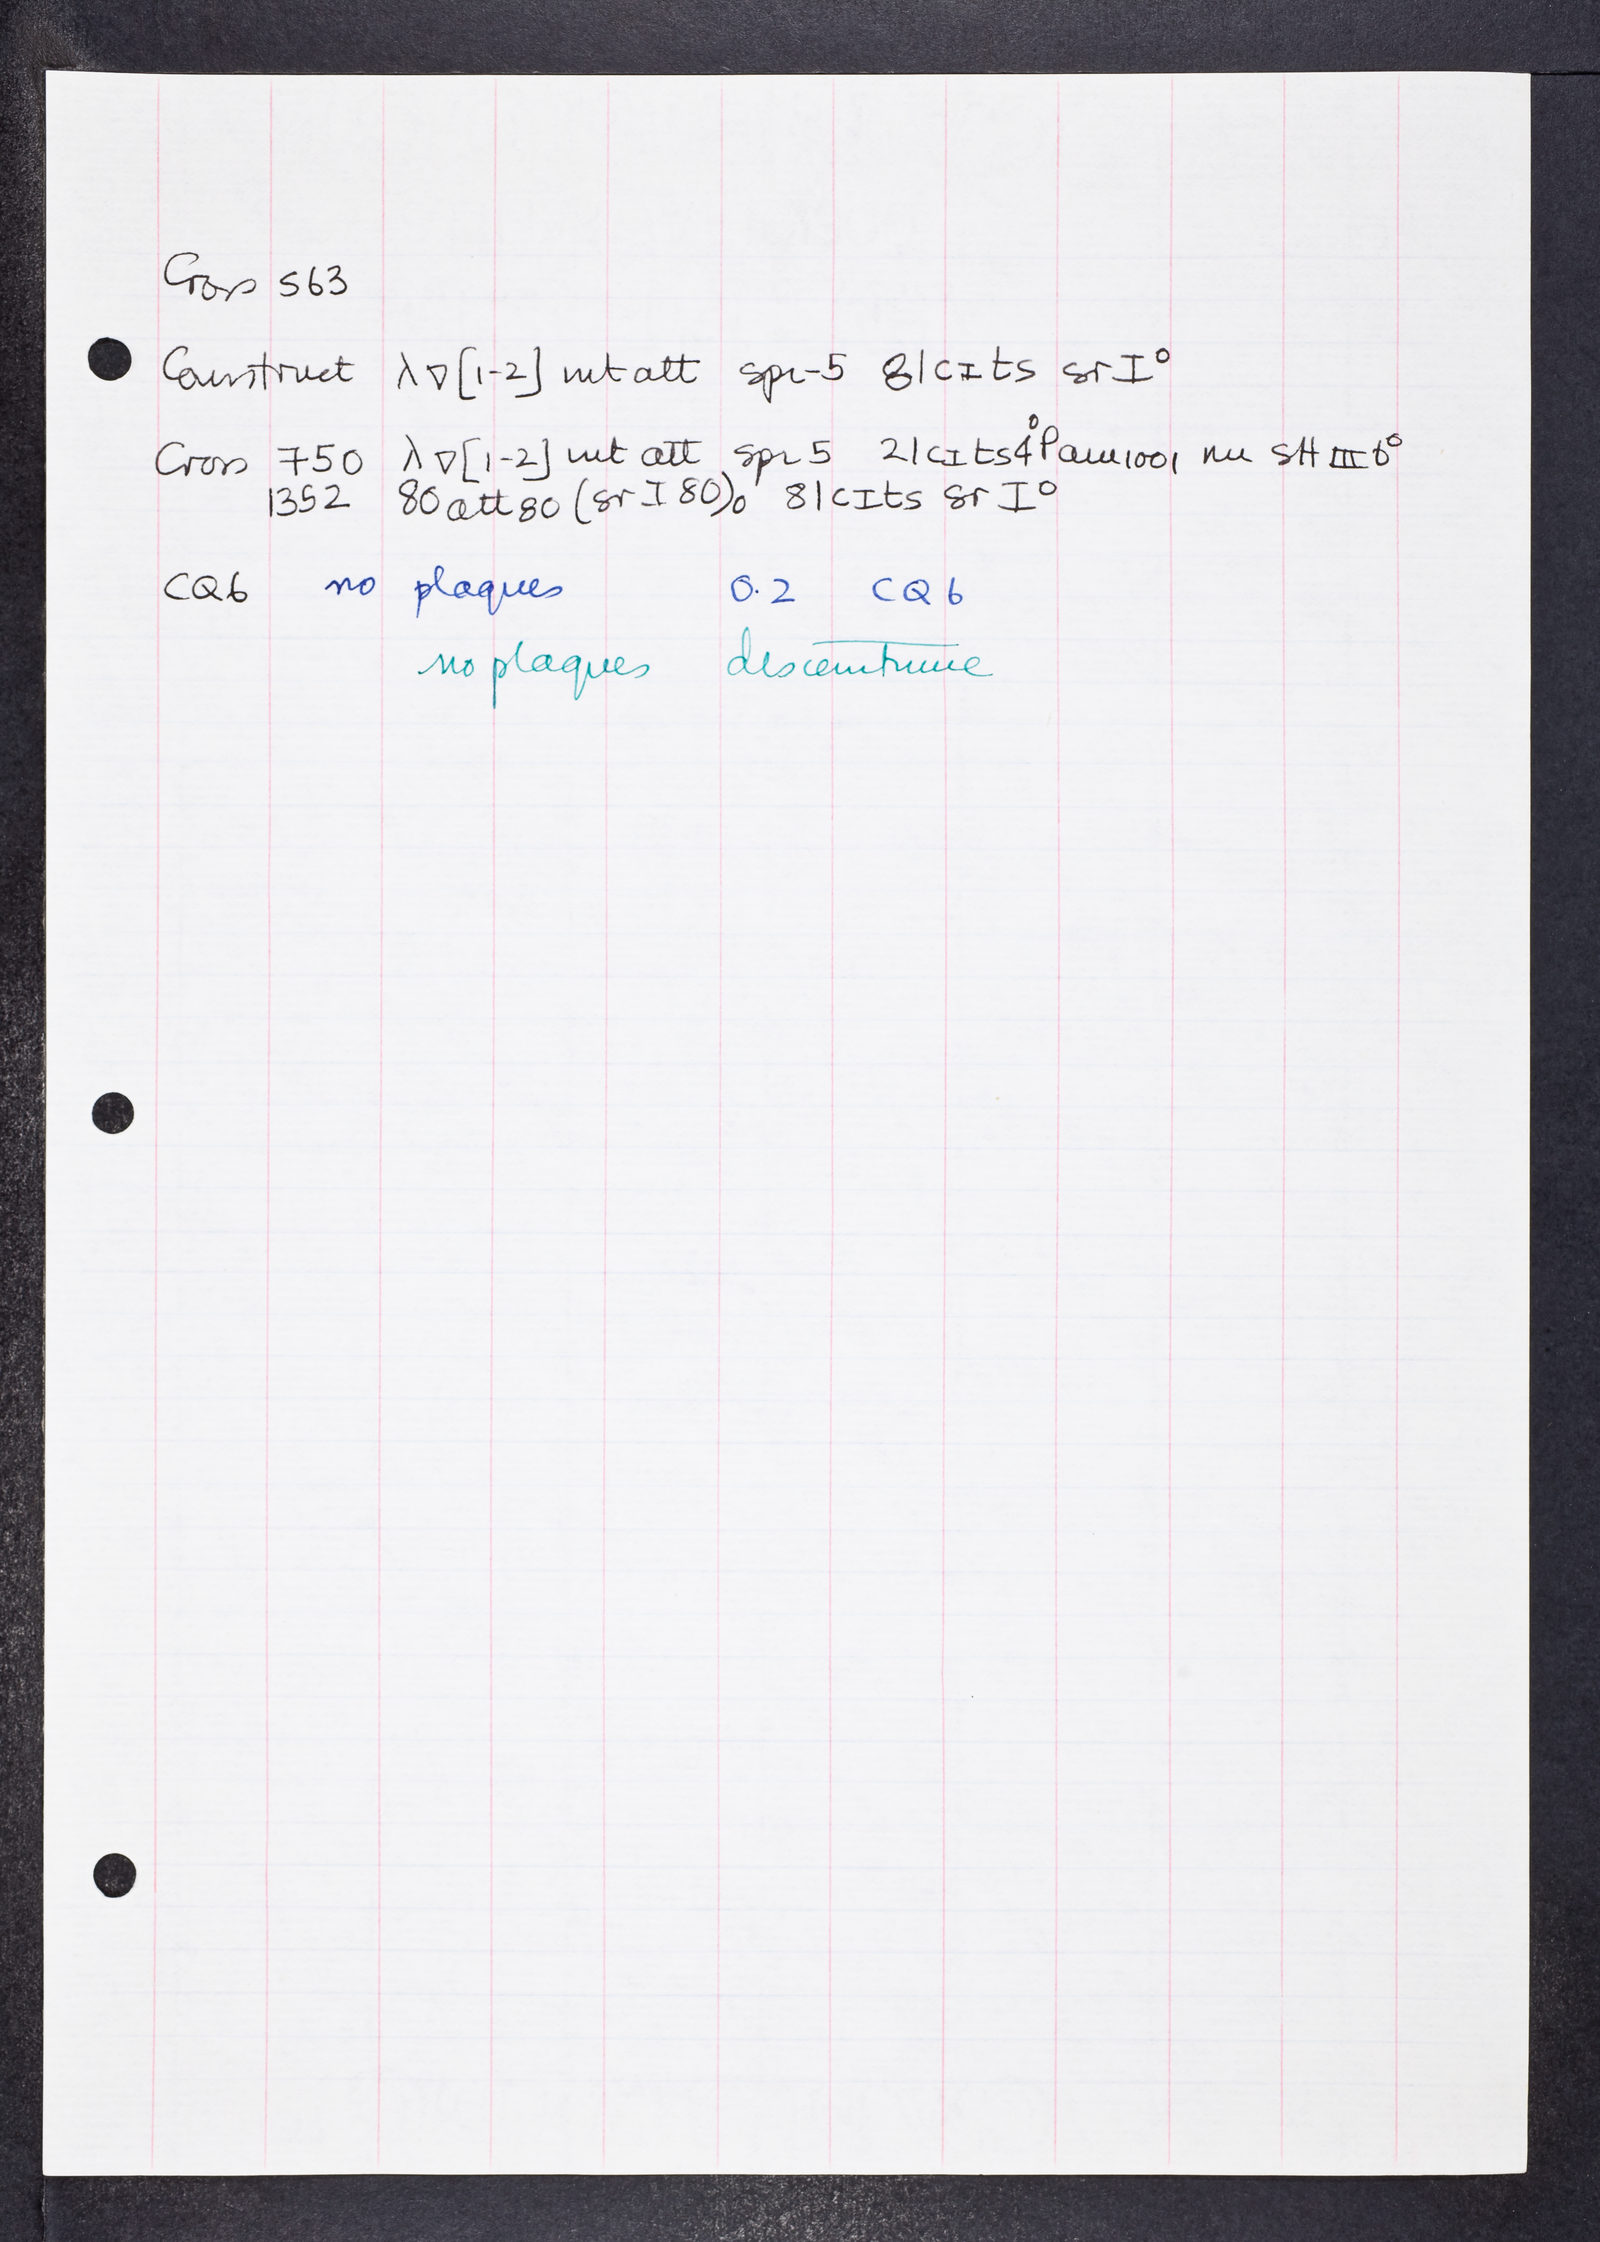 Cross 563
Construct λ∇[1-2] int att spi-5 81cIts srI°
Cross 750 λ∇[1-2] int att spi5 21cIts4° Pam1001 nin sHIII6°
1352 80att80 (srI80)° 81cIts srI°
CQ6 no plaques 0.2 CQ6
no plaques discontinue